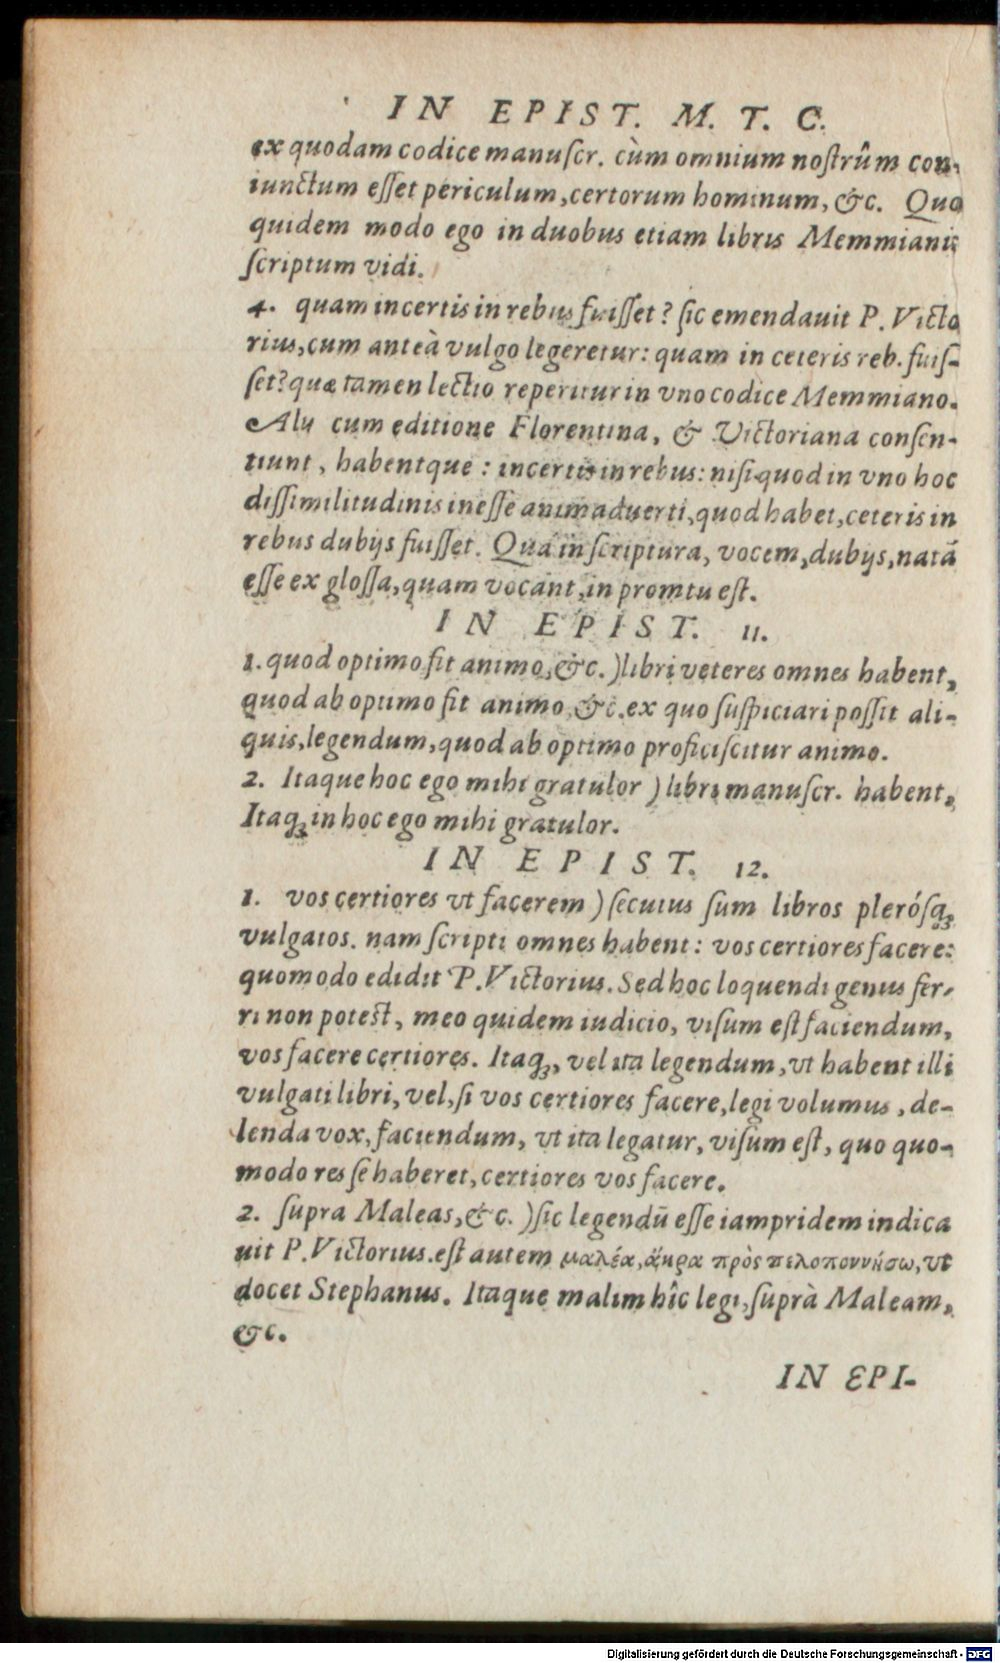 IN EPIST. M. T. C.
ex quodam codice manuſcr. cùm omnium noſtrûm con-
iunctum eſſet periculum, certorum hominum, &c. Quo
quidem modo ego in duobus etiam libris Memmianis
ſcriptum vidi.
4. quam incertis in rebus fuiſſet? ſic emendauit P. Victo
rius, cum anteà vulgo legeretur: quam in ceteris reb. fuiſ-
ſet? quæ tamen lectio reperitur in vno codice Memmiano.
Alij cum editione Florentina, & Victoriana conſen-
tiunt, habentque: incertis in rebus: niſi quod in vno hoc
diſſimilitudinis ineſſe animaduerti, quod habet, ceteris in
rebus dubijs fuiſſet. Qua in ſcriptura, vocem, dubijs, natā
eſſe ex gloſſa, quam vocant, in promtu eſt.
IN EPIST. 11.
1. quod optimo fit animo, &c.) libri veteres omnes habent,
quod ab optimo fit animo, &c. ex quo ſuſpiciari poſſit ali-
quis, legendum, quod ab optimo proficiſcitur animo.
2. Itaque hoc ego mihi gratulor) libri manuſcr. habent,
Itaq; in hoc ego mihi gratulor.
IN EPIST. 12.
1. vos certiores vt facerem) ſecutus ſum libros pleróſq;
vulgatos. nam ſcripti omnes habent: vos certiores facere:
quomodo edidit P. Victorius. Sed hoc loquendi genus fer-
ri non poteſt, meo quidem iudicio, viſum eſt faciendum,
vos facere certiores. Itaq;, vel ita legendum, vt habent illi
vulgati libri, vel, ſi vos certiores facere, legi volumus, de-
lenda vox, faciendum, vt ita legatur, viſum eſt, quo quo-
modo res ſe haberet, certiores vos facere.
2. ſupra Maleas, &c.) ſic legendū eſſe iampridem indica
uit P. Victorius. eſt autem μαλέα, ἄκρα πρὸς πελοποννήσω, vt
docet Stephanus. Itaque malim hîc legi, ſuprà Maleam,
&c.
IN EPI-
Digitalisierung gefördert durch die Deutsche Forschungsgemeinschaft - DFG